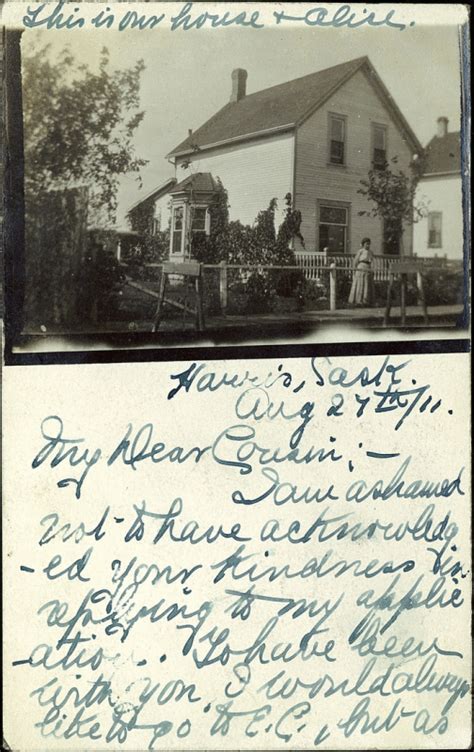 This is our house & Alice.
Harris, Sask.
Aug 27th/11.
My Dear Cousin;-
I am ashamed
not to have acknowledg
-ed your kindness in
replying to my applic
-ation. To have been
with you I would always
like to go to E.C., but as